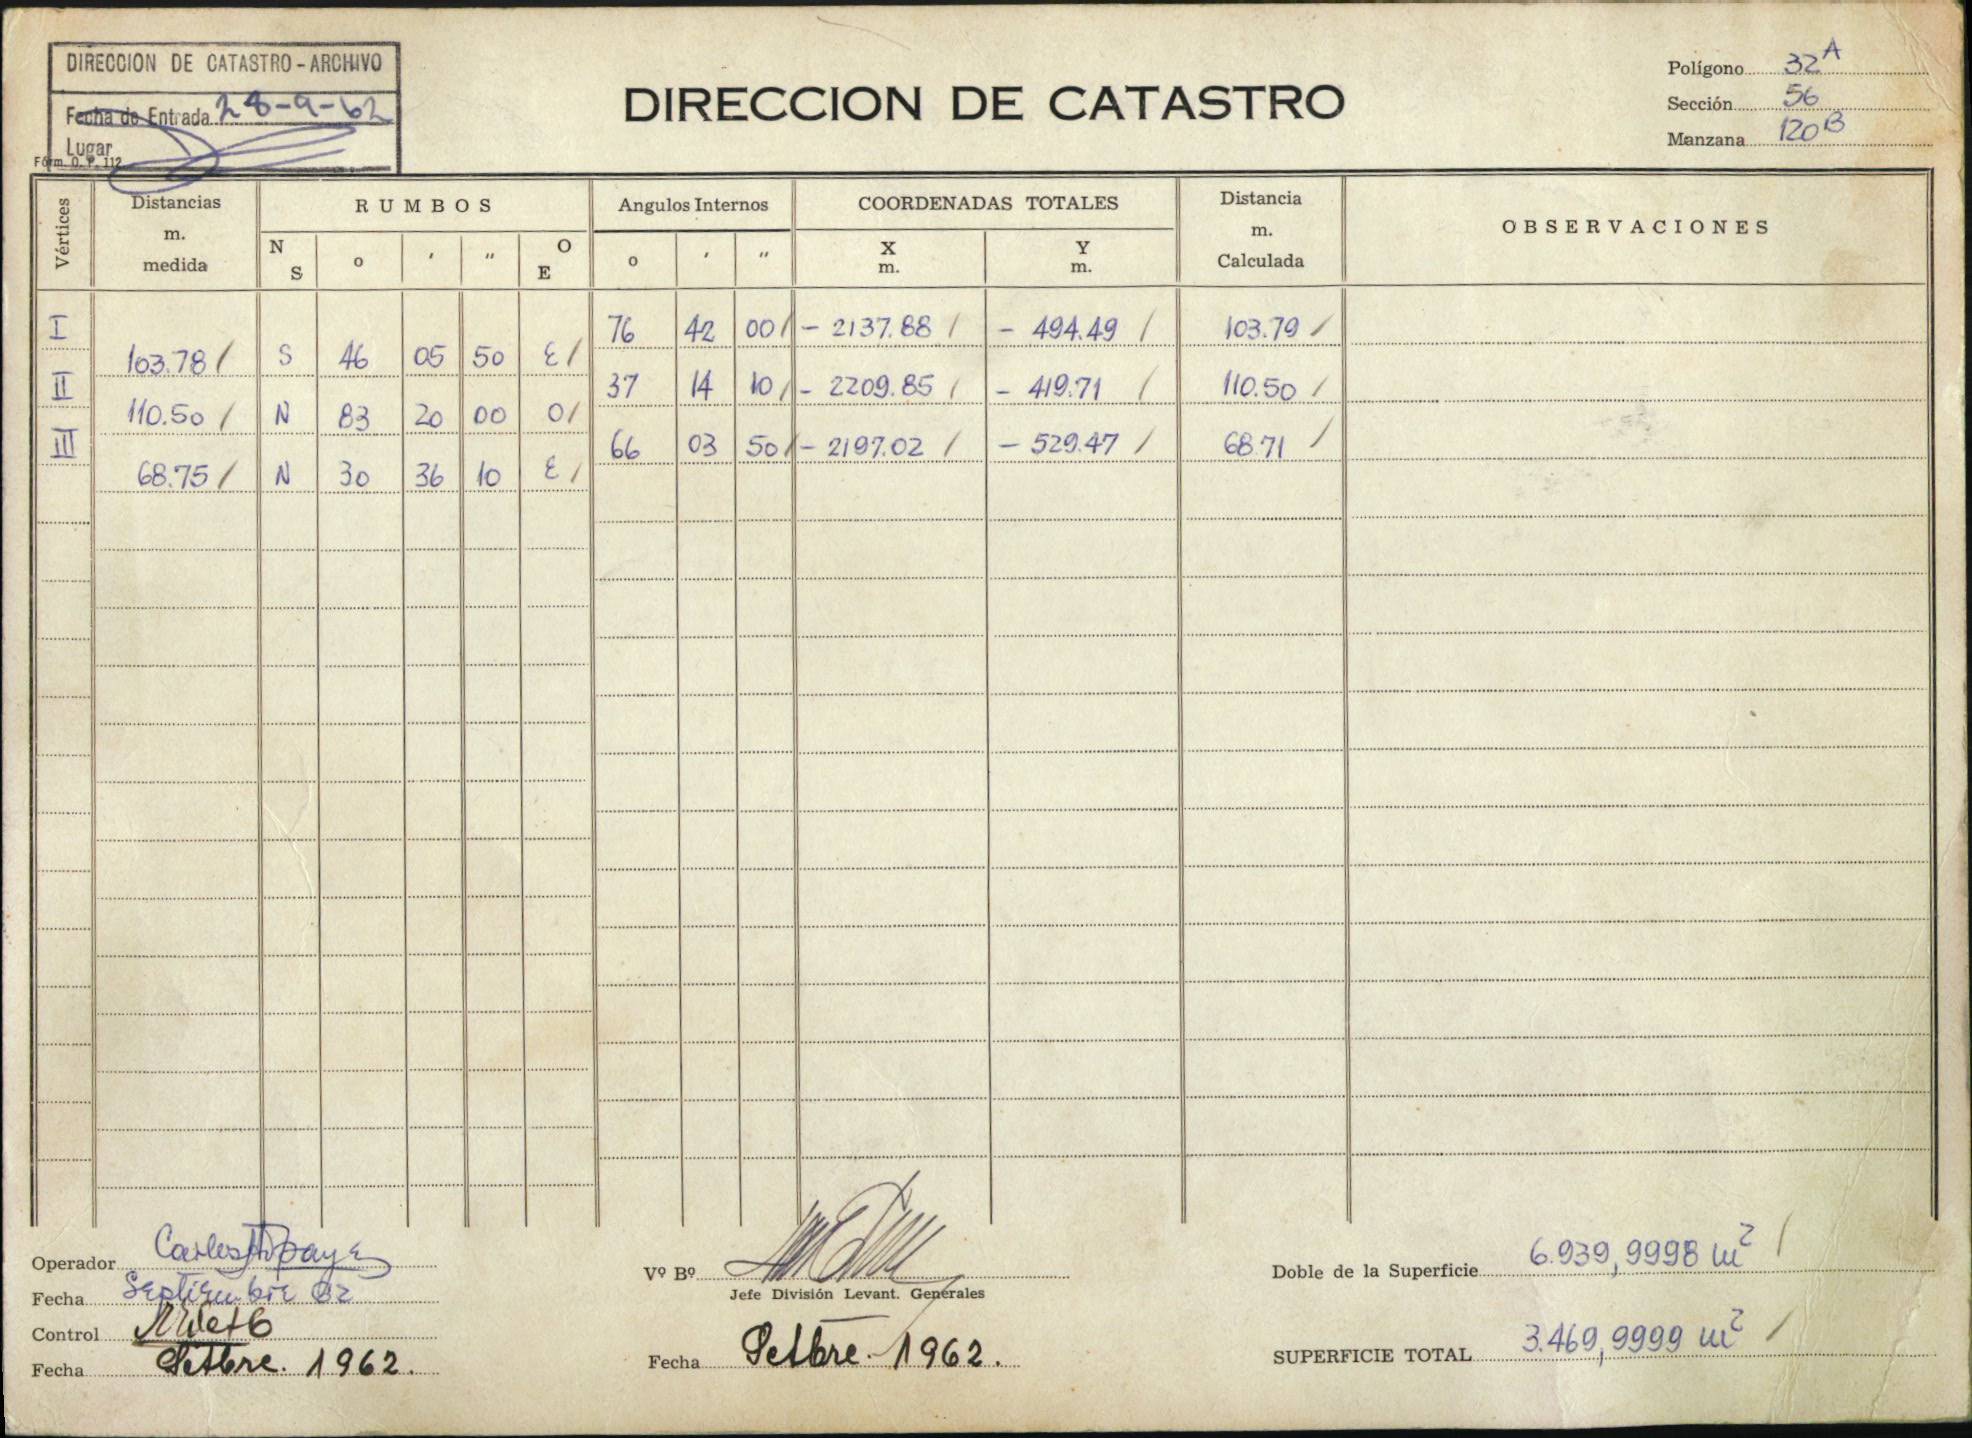 DIRECCION DE CATASTRO - ARCHIVO
Fecha de Entrada 28-9-62
Lugar
Fórm. O. P. 112
DIRECCION DE CATASTRO
Polígono 32A
Sección 56
Manzana 120B
Vértices
Distancias m. medida
RUMBOS
N S o ' " O E
Angulos Internos
o ' "
COORDENADAS TOTALES
X m. Y m.
Distancia m. Calculada
OBSERVACIONES
I 76 42 00 / - 2137.88 / - 494.49 / 103.79 /
103.78 / S 46 05 50 E /
II 37 14 10 / - 2209.85 / - 419.71 / 110.50 /
110.50 / N 83 20 00 O /
III 66 03 50 / - 2197.02 / - 529.47 / 68.71 /
68.75 / N 30 36 10 E /
Operador Carlos
Fecha Septiembre 62
Control
Fecha Setbre. 1962.
Vº Bº
Jefe División Levant. Generales
Fecha Setbre - 1962.
Doble de la Superficie 6.939,9998 m2 /
SUPERFICIE TOTAL 3.469,9999 m2 /